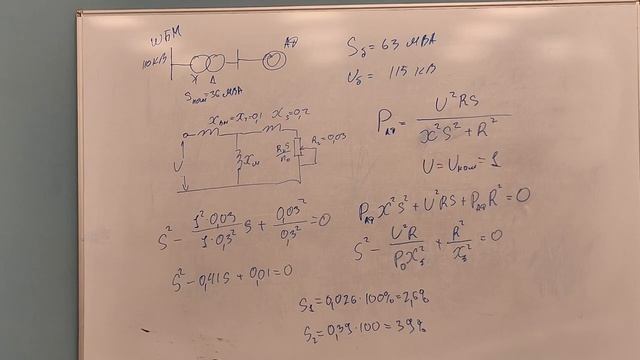 ШБМ
110 кВ
АД
Y Δ
Sном=36 МВА
Sб = 63 МВА
Uб = 115 кВ
Xвн=Xт=0,1
Xs=0,2
R2=0,03
Xм
U
Pад = U²RS / (X²S² + R²)
U = Uном = 1
Pад X²S² + U²RS + Pад R² = 0
S² - (U²R / P0Xs²) + (R² / Xs²) = 0
S² - (1²·0,03 / 1·0,3²) S + (0,03² / 0,3²) = 0
S² - 0,41S + 0,01 = 0
S1 = 0,026·100% = 2,6%
S2 = 0,39·100 = 39%